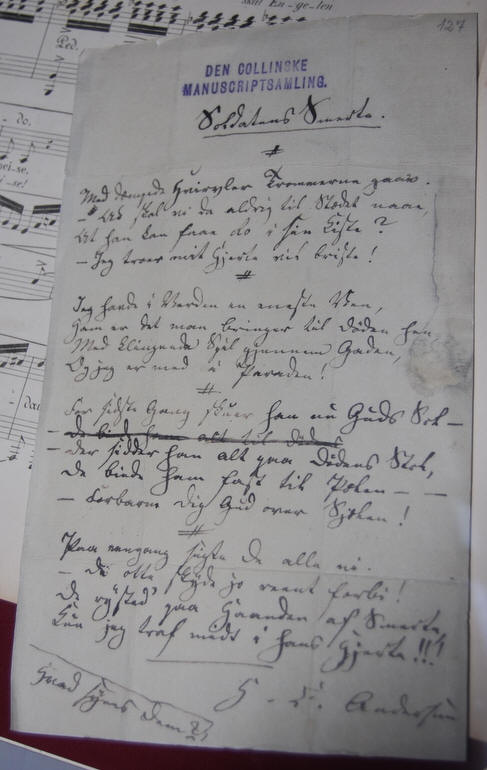 skul En-ge-len
Ped.
do,
127
DEN COLLINSKE
MANUSCRIPTSAMLING.
Soldatens Smerte.
Med dæmpede Hvirvler Trommerne gaae.
– Ak skal vi da aldrig til Stedet naae,
At han kan faae Ro i sin Kiste?
– Jeg troer mit Hjerte vil briste!
Jeg havde i Verden en eneste Ven,
Ham er det man bringer til Døden hen,
Med klingende Spil gjennem Gaden,
Og jeg er med i Paraden!
For sidste Gang skuer han nu Guds Sol –
– de bind ham alt til Døden
– der sidder han alt paa Dødens Stol,
De binde ham fast til Pælen – –
– Forbarm Dig Gud over Sjælen!
Paa eengang sigte de alle ni.
– De otte skyde jo reent forbi!
De rysted' paa Haanden af Smerte,
Kun jeg traf midt i hans Hjerte!!!
H. C. Andersen
Hvad synes Dem?